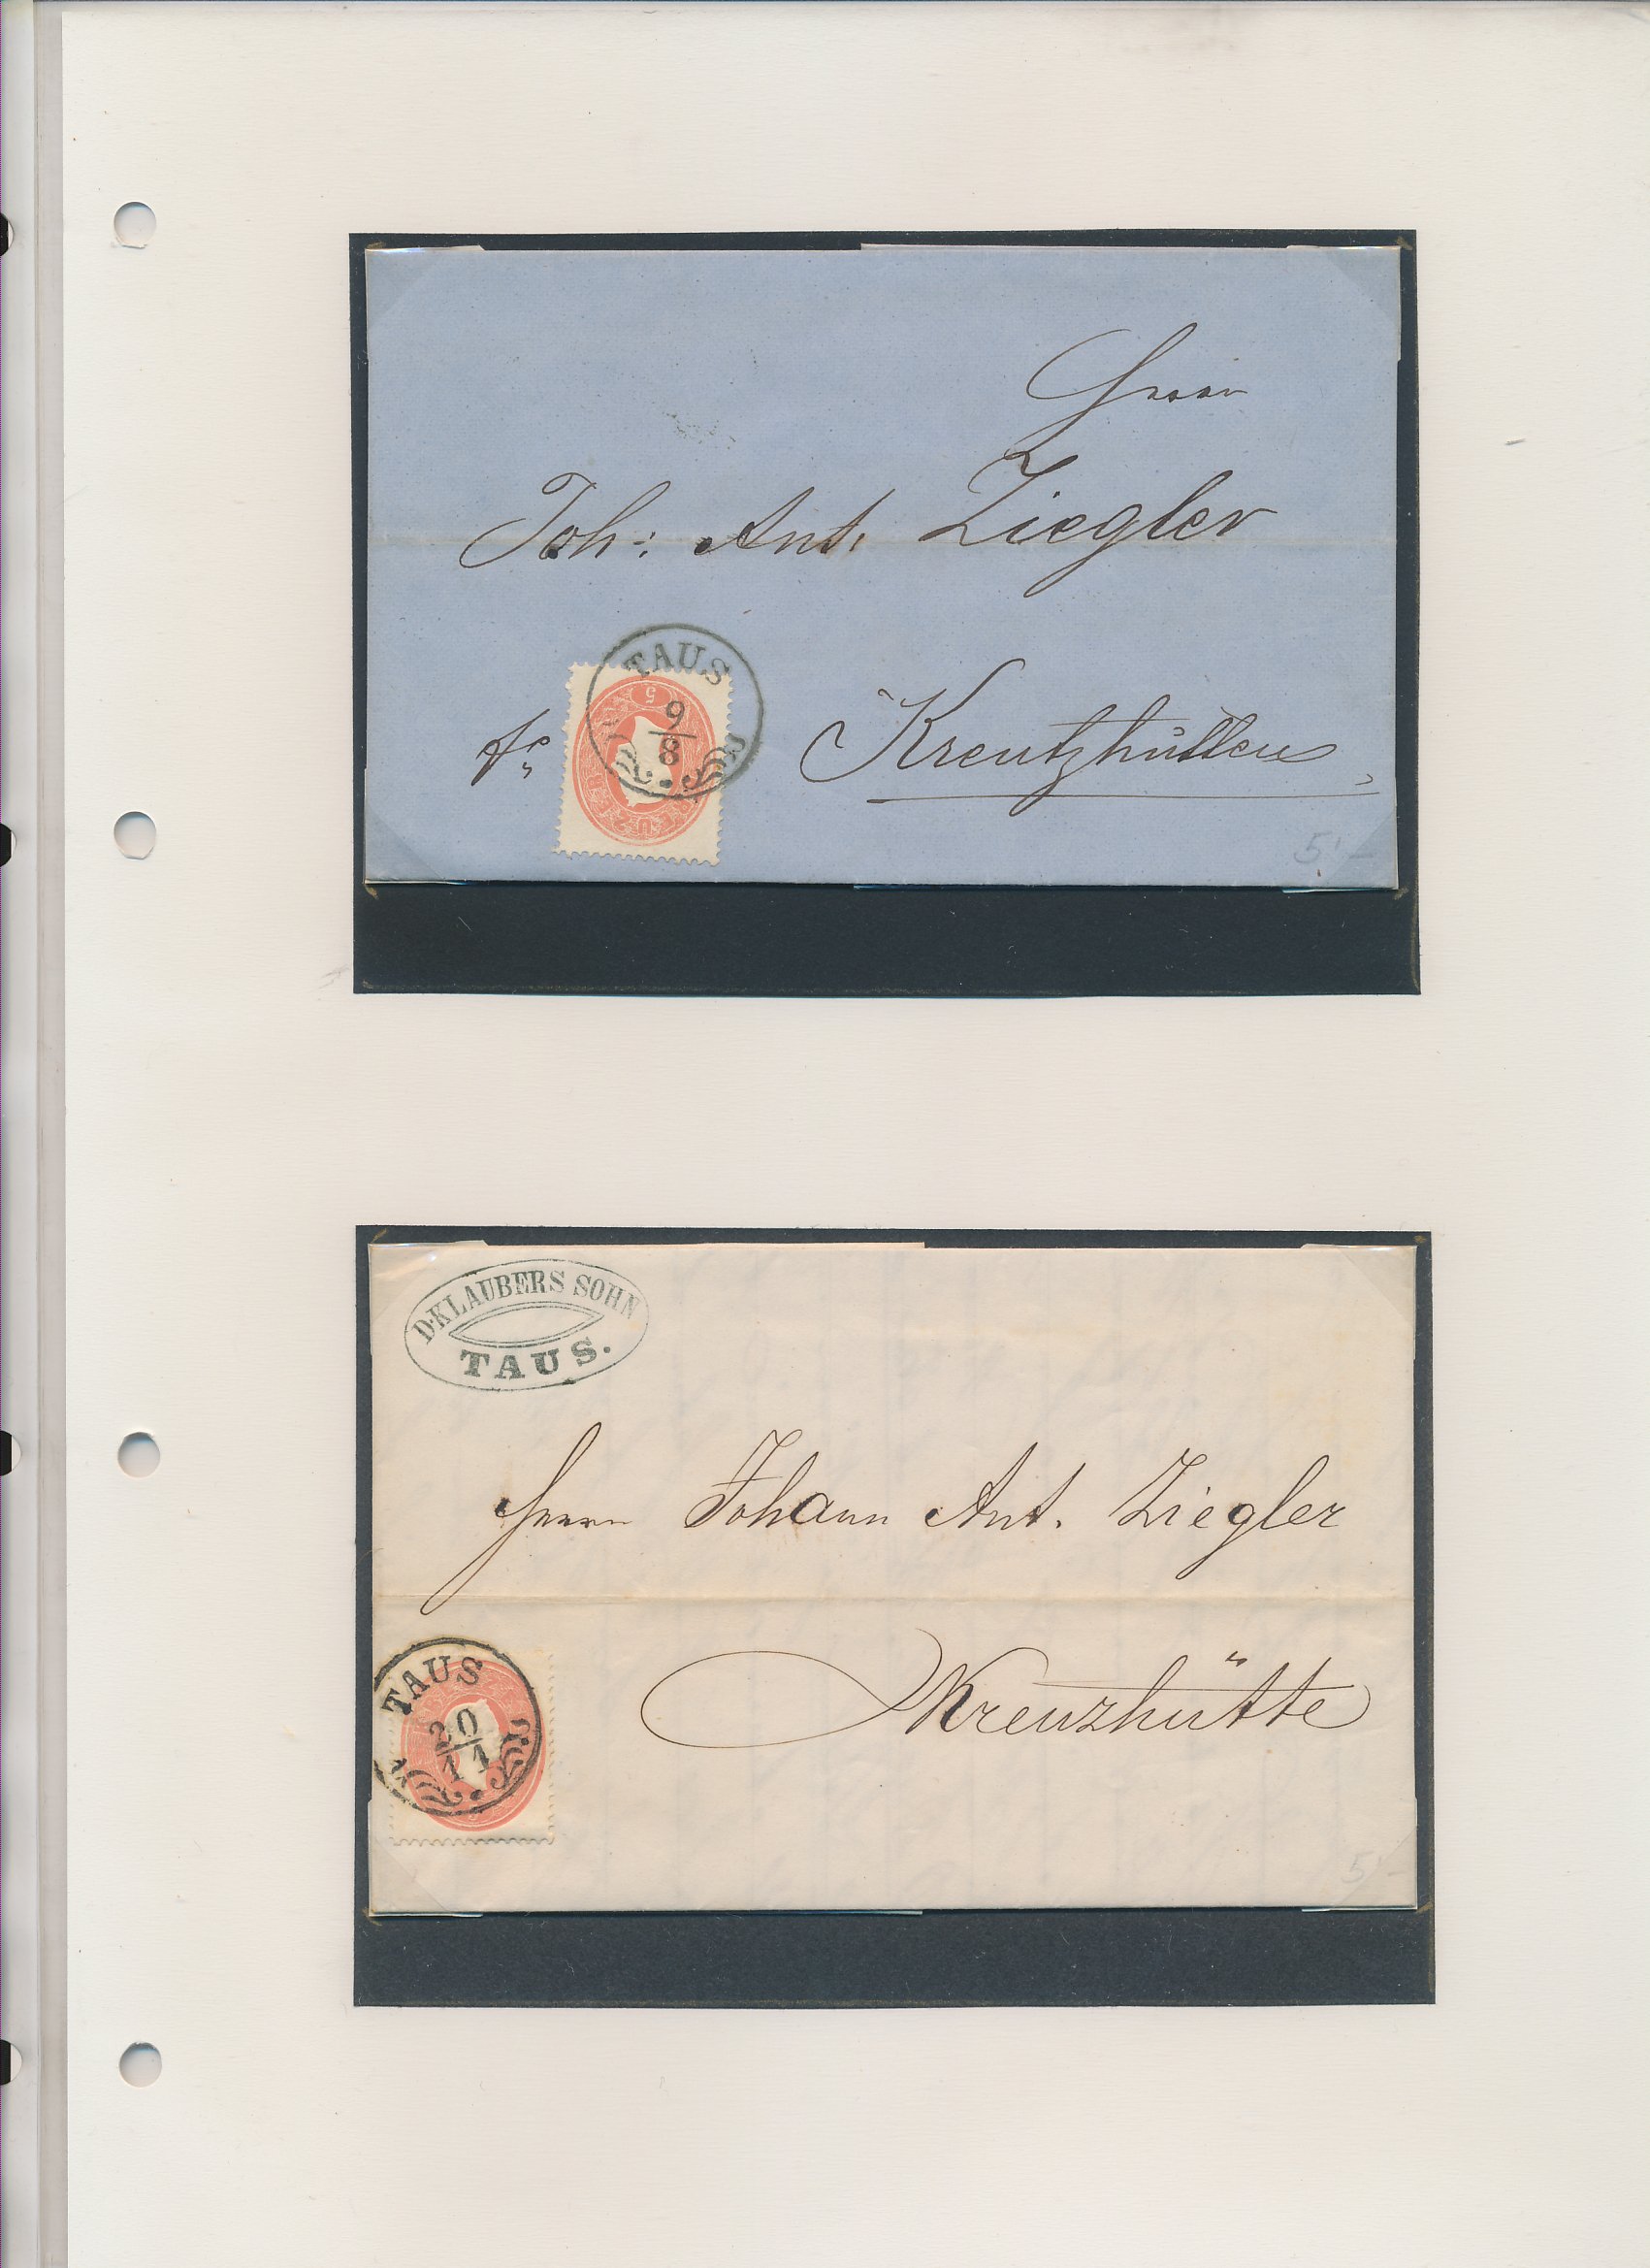 Herrn
Joh: Ant. Ziegler
TAUS
9
8
5
Kreutzhütten
5'-
D. KLAUBERS SOHN
TAUS.
Herrn Johann Ant. Ziegler
TAUS
20
11
Kreuzhütte
5'-